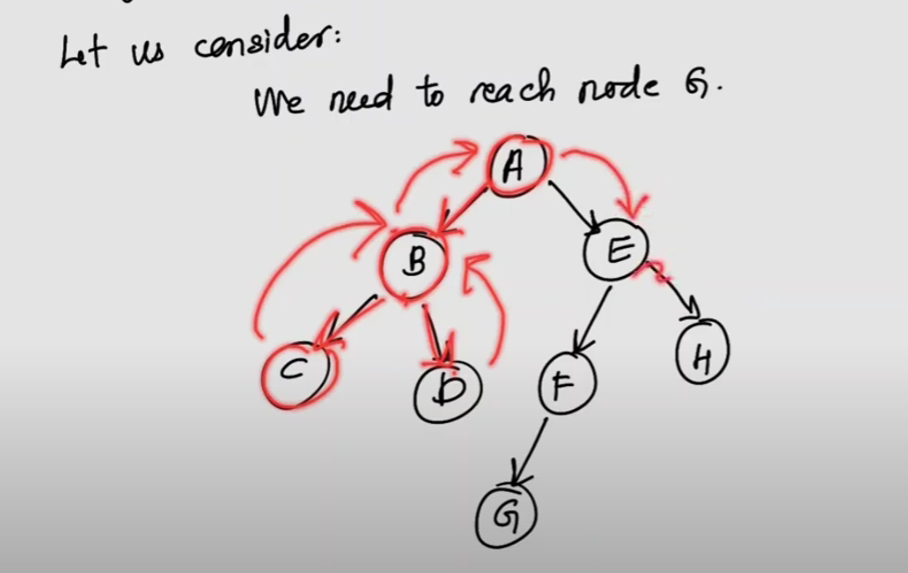 Let us consider:
We need to reach node G.
A
B
E
C
D
F
H
G